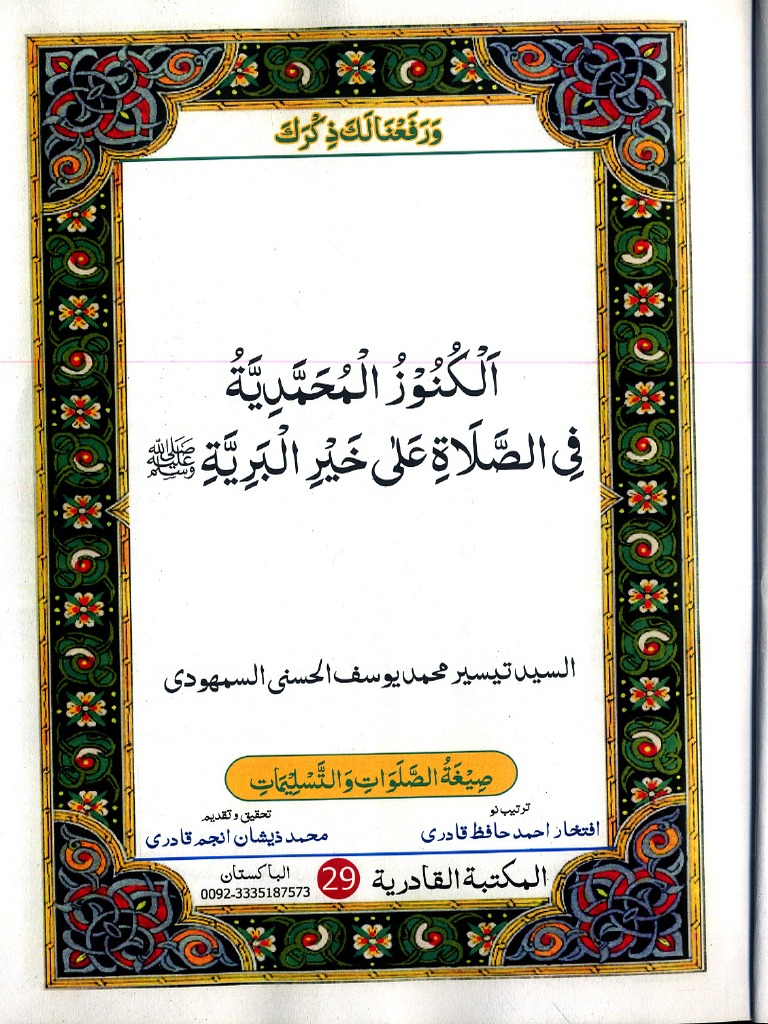 وَرَفَعْنَا لَكَ ذِكْرَكَ
اَلْكُنُوْزُ الْمُحَمَّدِيَّةُ
فِي الصَّلَاةِ عَلٰی خَيْرِ الْبَرِيَّةِ ﷺ
السيد تيسير محمد يوسف الحسنی السمهودی
صِيْغَةُ الصَّلَوَاتِ وَالتَّسْلِيْمَاتِ
ترتیب نو تحقیق و تقدیم
افتخار احمد حافظ قادری محمد ذیشان انجم قادری
المكتبة القادرية 29 الباكستان
0092-3335187573